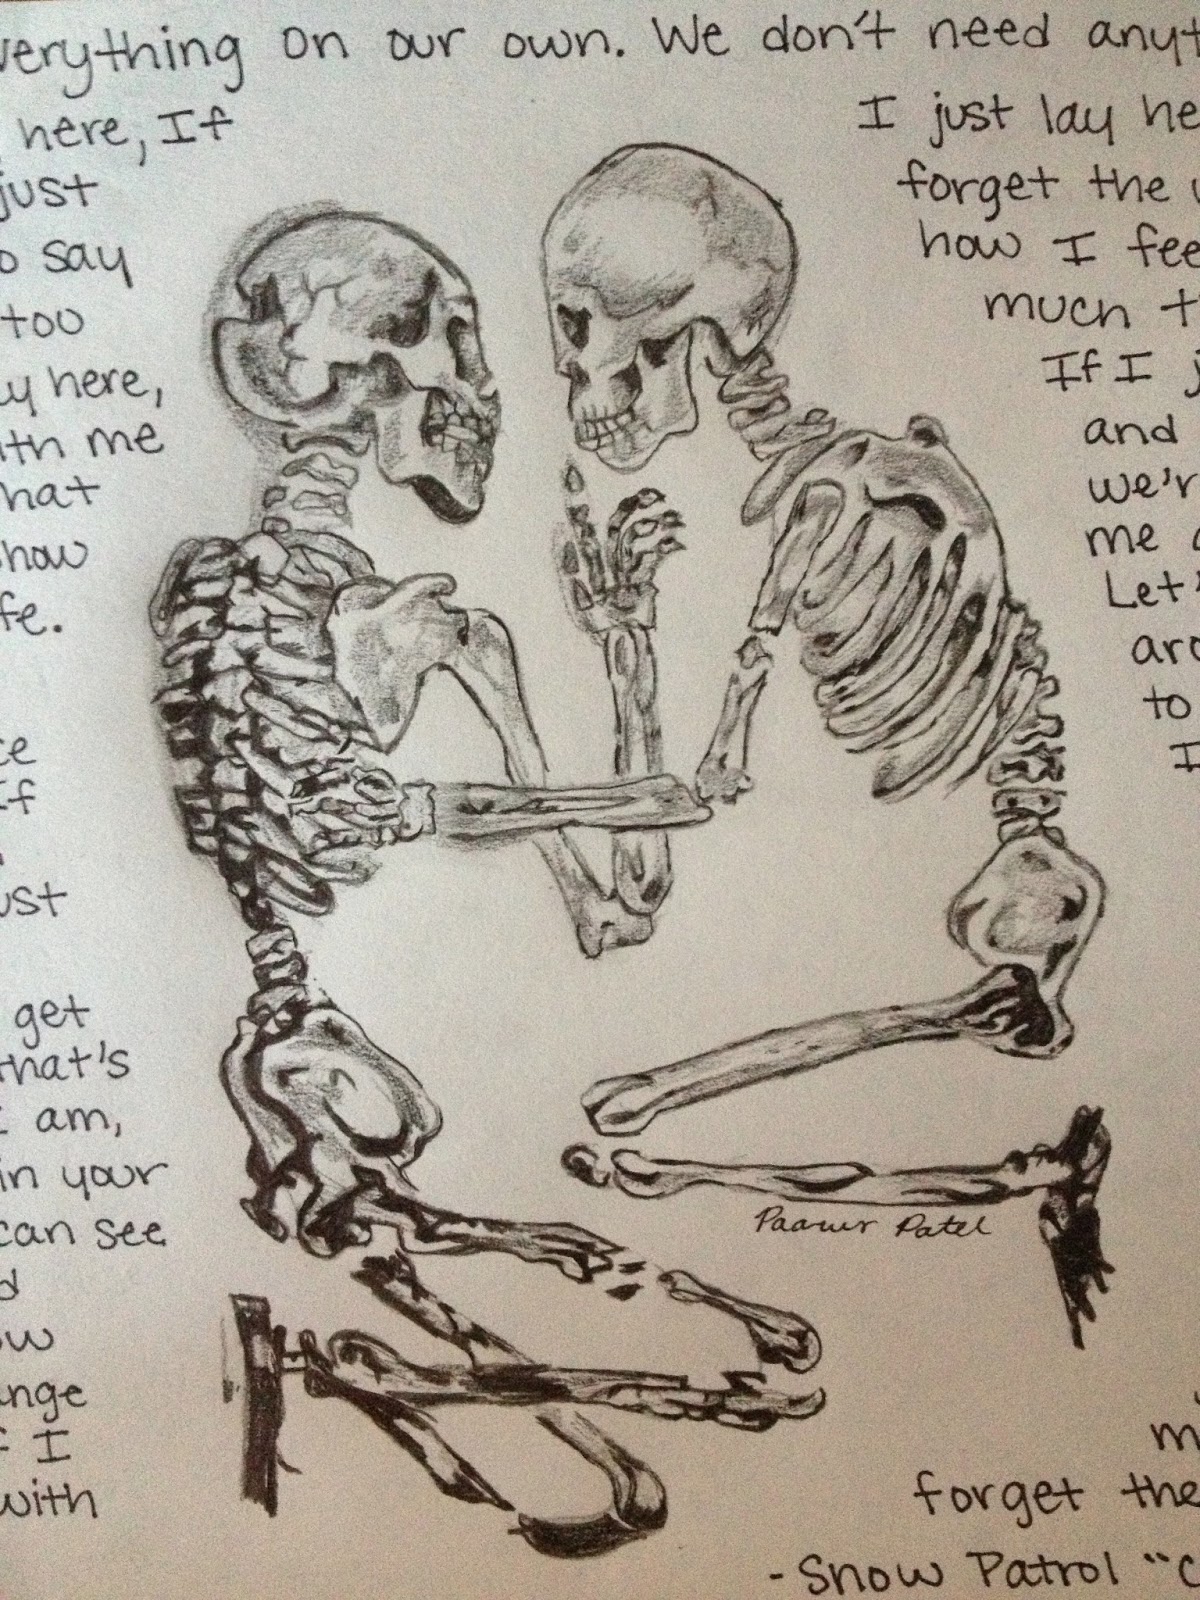 verything on our own. We don't need anyt
here, If
just
o say
too
y here,
ith me
hat
how
fe.
ce
If
ust
get
that's
I am,
in your
can see
d
ow
ange
f I
with
I just lay he
forget the w
how I fee
much t
If I j
and
we'r
me a
Let'
aro
to
I
Patel
m
forget the
- Snow Patrol "C